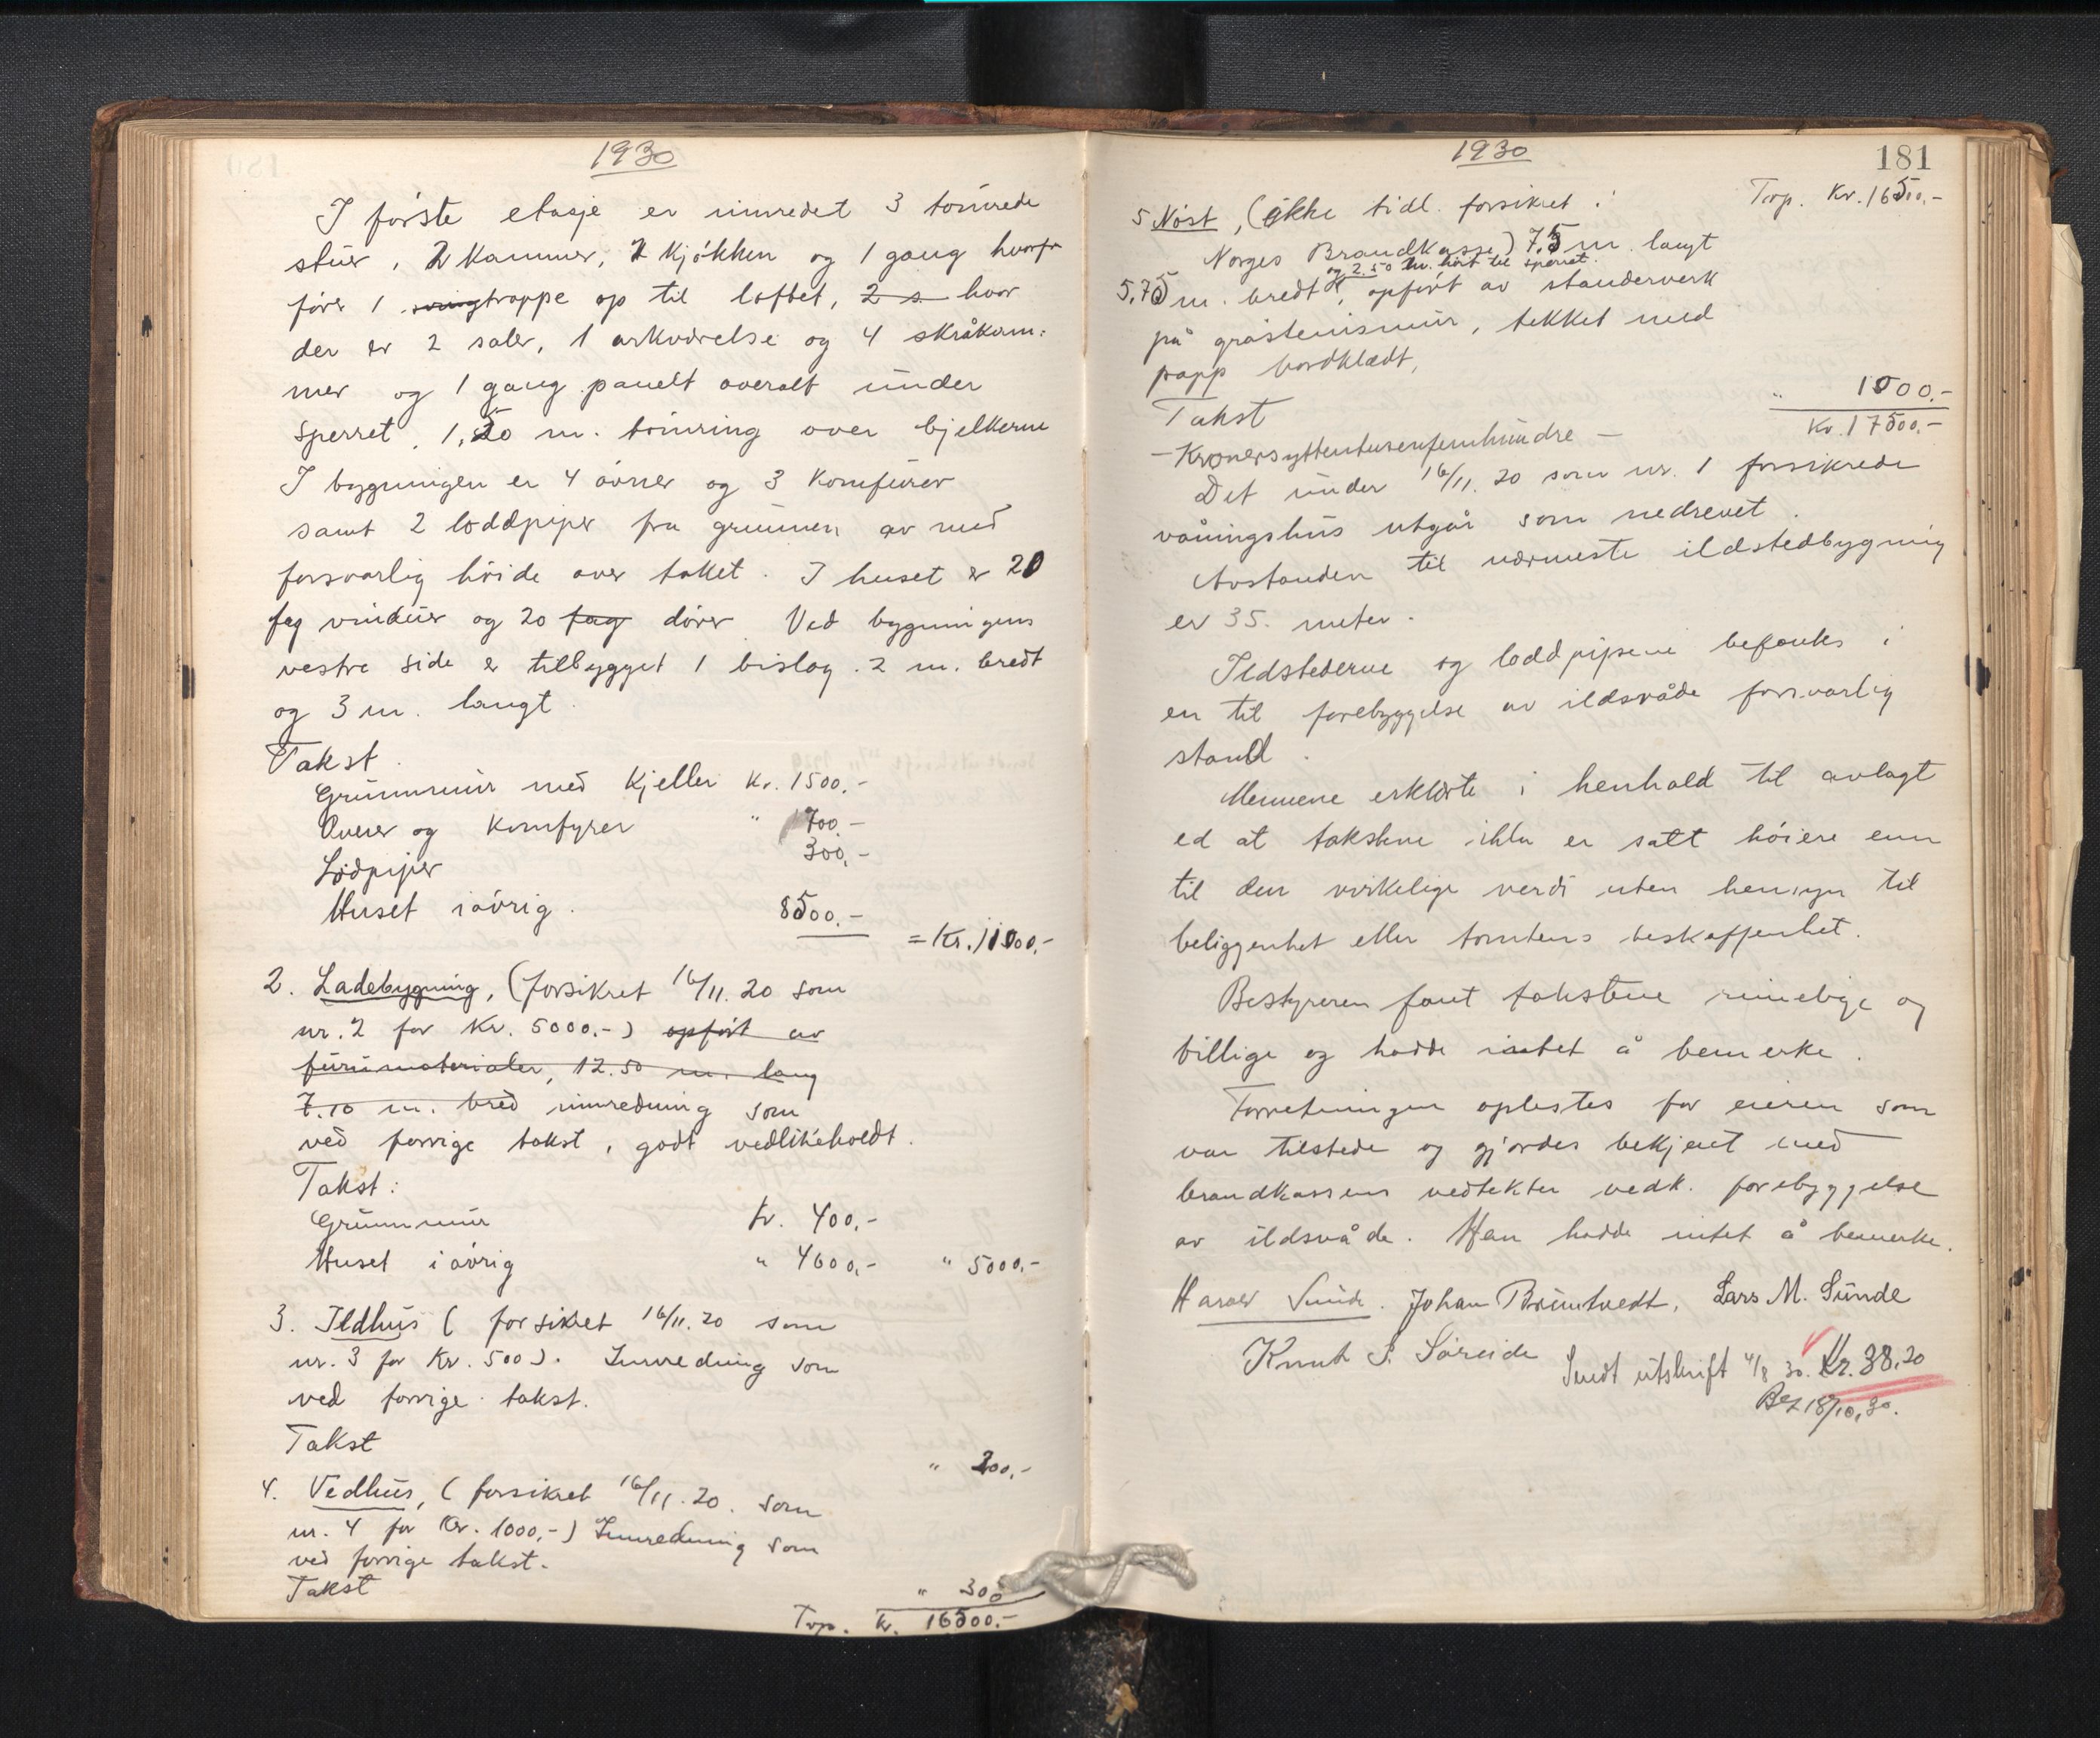 1930
I første etasje er innredet 3 tømrede
stuer, 2 kammer, 2 kjøkken og 1 gang hvorfr
fører 1 trappe op til loftet, 2 s hvor
der er 2 saler, 1 arkværelse og 4 skråkam:
mer og 1 gang panelt overalt under
sperret, 1,50 m. tømring over bjelkerne
I bygningen er 4 ovner og 3 komfurer
samt 2 loddpiper fra grunnen av med
forsvarlig høide over taket. I huset er 20
fag vinduer og 20 fag dører. Ved bygningens
vestre side er tilbygget 1 bislag. 2 m. bredt
og 3 m. langt.
Takst.
Grunnmur med kjeller Kr. 1500,-
Ovner og Komfyrer " 700,-
Lodpiper 300,-
Huset iøvrig. 8500,-
= Kr. 11000,-
2. Ladebygning, (forsikret 16/11. 20 som
nr. 2 for Kr. 5000.-) opført av
furumaterialer, 12.50 m. lang
7.10 m. bred innredning som
ved forrige takst, godt vedlikeholdt.
Takst:
Grunnmur Kr. 400,-
Huset iøvrig " 4600,- " 5000,-
3. Ildhus ( forsikret 16/11. 20 som
nr. 3 for Kr. 500). Innredning som
ved forrige takst.
Takst
" 200,-
4. Vedhus, ( forsikret 16/11. 20. som
nr. 4 for Kr. 1000,-) Innredning som
ved forrige takst.
Takst
" 300
Trp. Kr. 16500.-
1930
181
Trp. Kr. 16500,-
5 Nøst, (ikke tidl. forsikret i
Norges Brandkasse) 7,5 m. langt
og 2.50 m. høit til sperret.
5,75 m. bredt, opført av standerverk
på gråstensmur, tekket med
papp bordklædt,
Takst
" 1000.-
Kr. 17500.-
- Kronersyttentusenfemhundre -
Det under 16/11. 20 som nr. 1 forsikrede
våningshus utgår som nedrevet.
Avstanden til nærmeste ildstedbygning
er 35. meter.
Ildstederne og loddpipene befantes i
en til forebyggelse av ildsvåde forsvarlig
stand.
Mennene erklærte i henhold til avlagt
ed at takstene ikke er satt høiere enn
til den virkelige verdi uten hensyn til
beliggenhet eller tomtens beskaffenhet.
Bestyreren fant takstene rimelige og
billige og hadde intet å bemerke.
Forretningen oplestes for eieren som
var tilstede og gjordes bekjent med
brandkassens vedtekter vedk. forebyggelse
av ildsvåde. Han hadde intet å bemerke.
Harald Sunde. Johan Brumtvedt, Lars M. Sunde
Knut S. Søreide
Sendt utskrift 4/8 30. Kr. 38,20
Bet 18/10, 30.